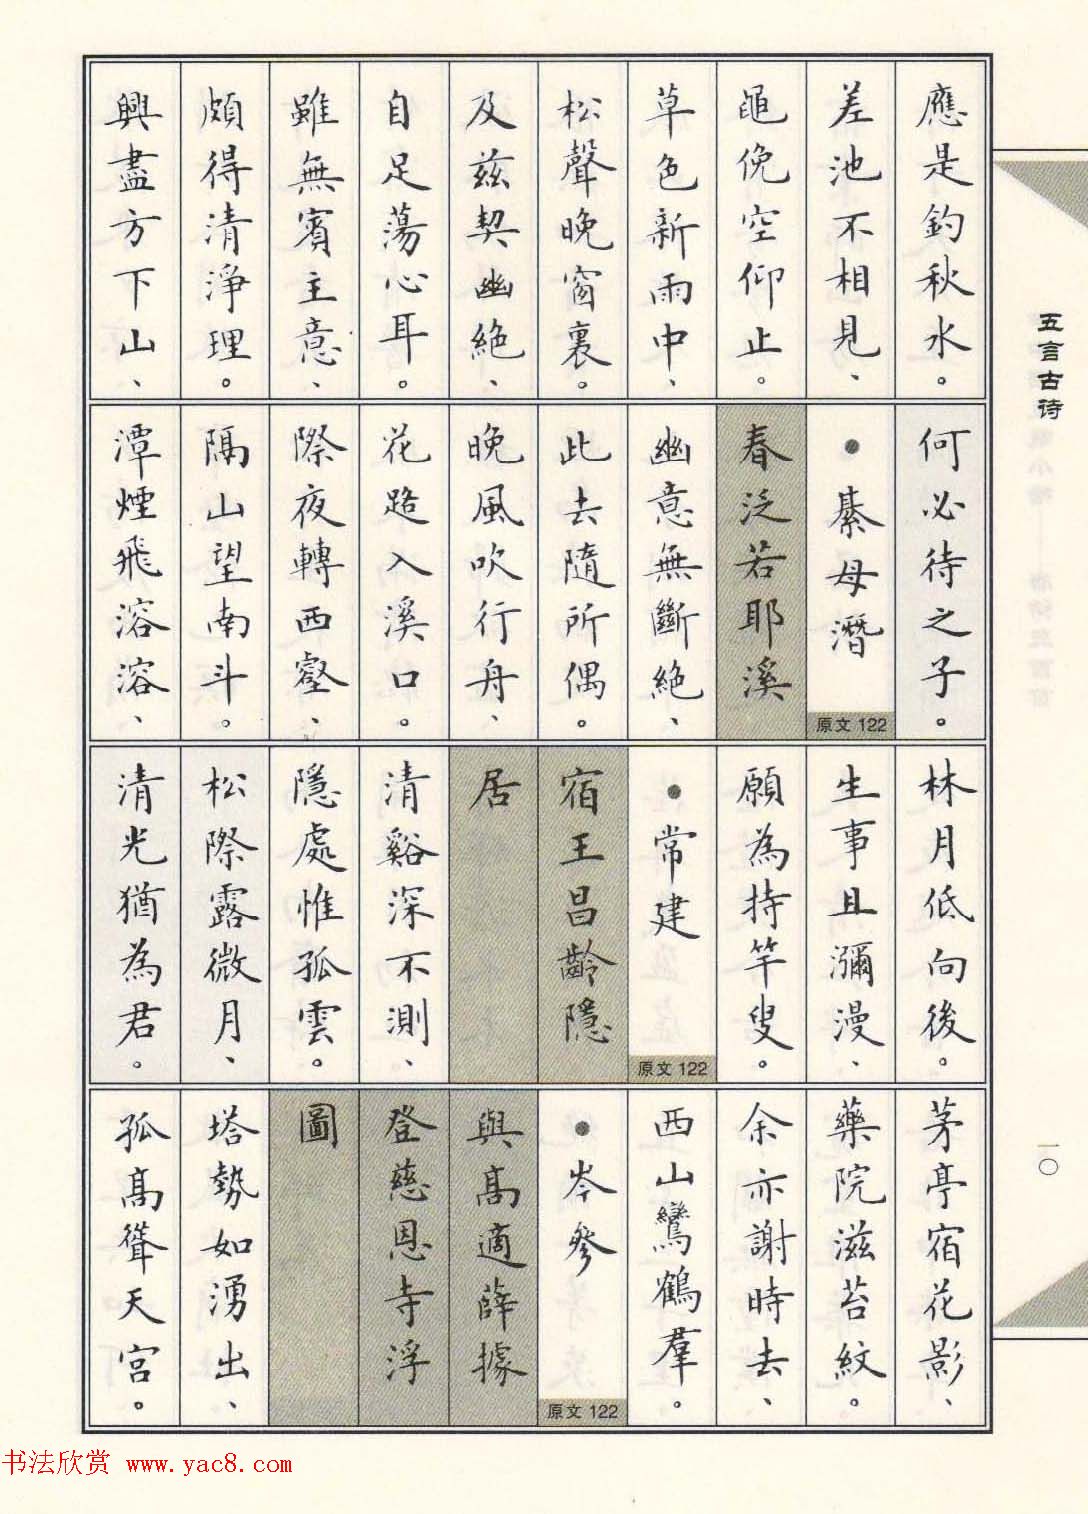 應是釣秋水。
差池不相見、
黽俛空仰止。
草色新雨中、
松聲晚窗裏。
及茲契幽絶、
自足蕩心耳。
雖無賓主意、
頗得清淨理。
興盡方下山、
何必待之子。
●綦母潛
原文122
春泛若耶溪
幽意無斷絶、
此去隨所偶。
晚風吹行舟、
花路入溪口。
際夜轉西壑、
隔山望南斗。
潭煙飛溶溶、
林月低向後。
生事且瀰漫、
願為持竿叟。
●常建
原文122
宿王昌齡隱
居
清谿深不測、
隱處惟孤雲。
松際露微月、
清光猶為君。
茅亭宿花影、
藥院滋苔紋。
余亦謝時去、
西山鸞鶴羣。
●岑參
原文122
與高適薛據
登慈恩寺浮
圖
塔勢如湧出、
孤高聳天宮。
五言古诗
一〇
书法欣赏 www.yac8.com